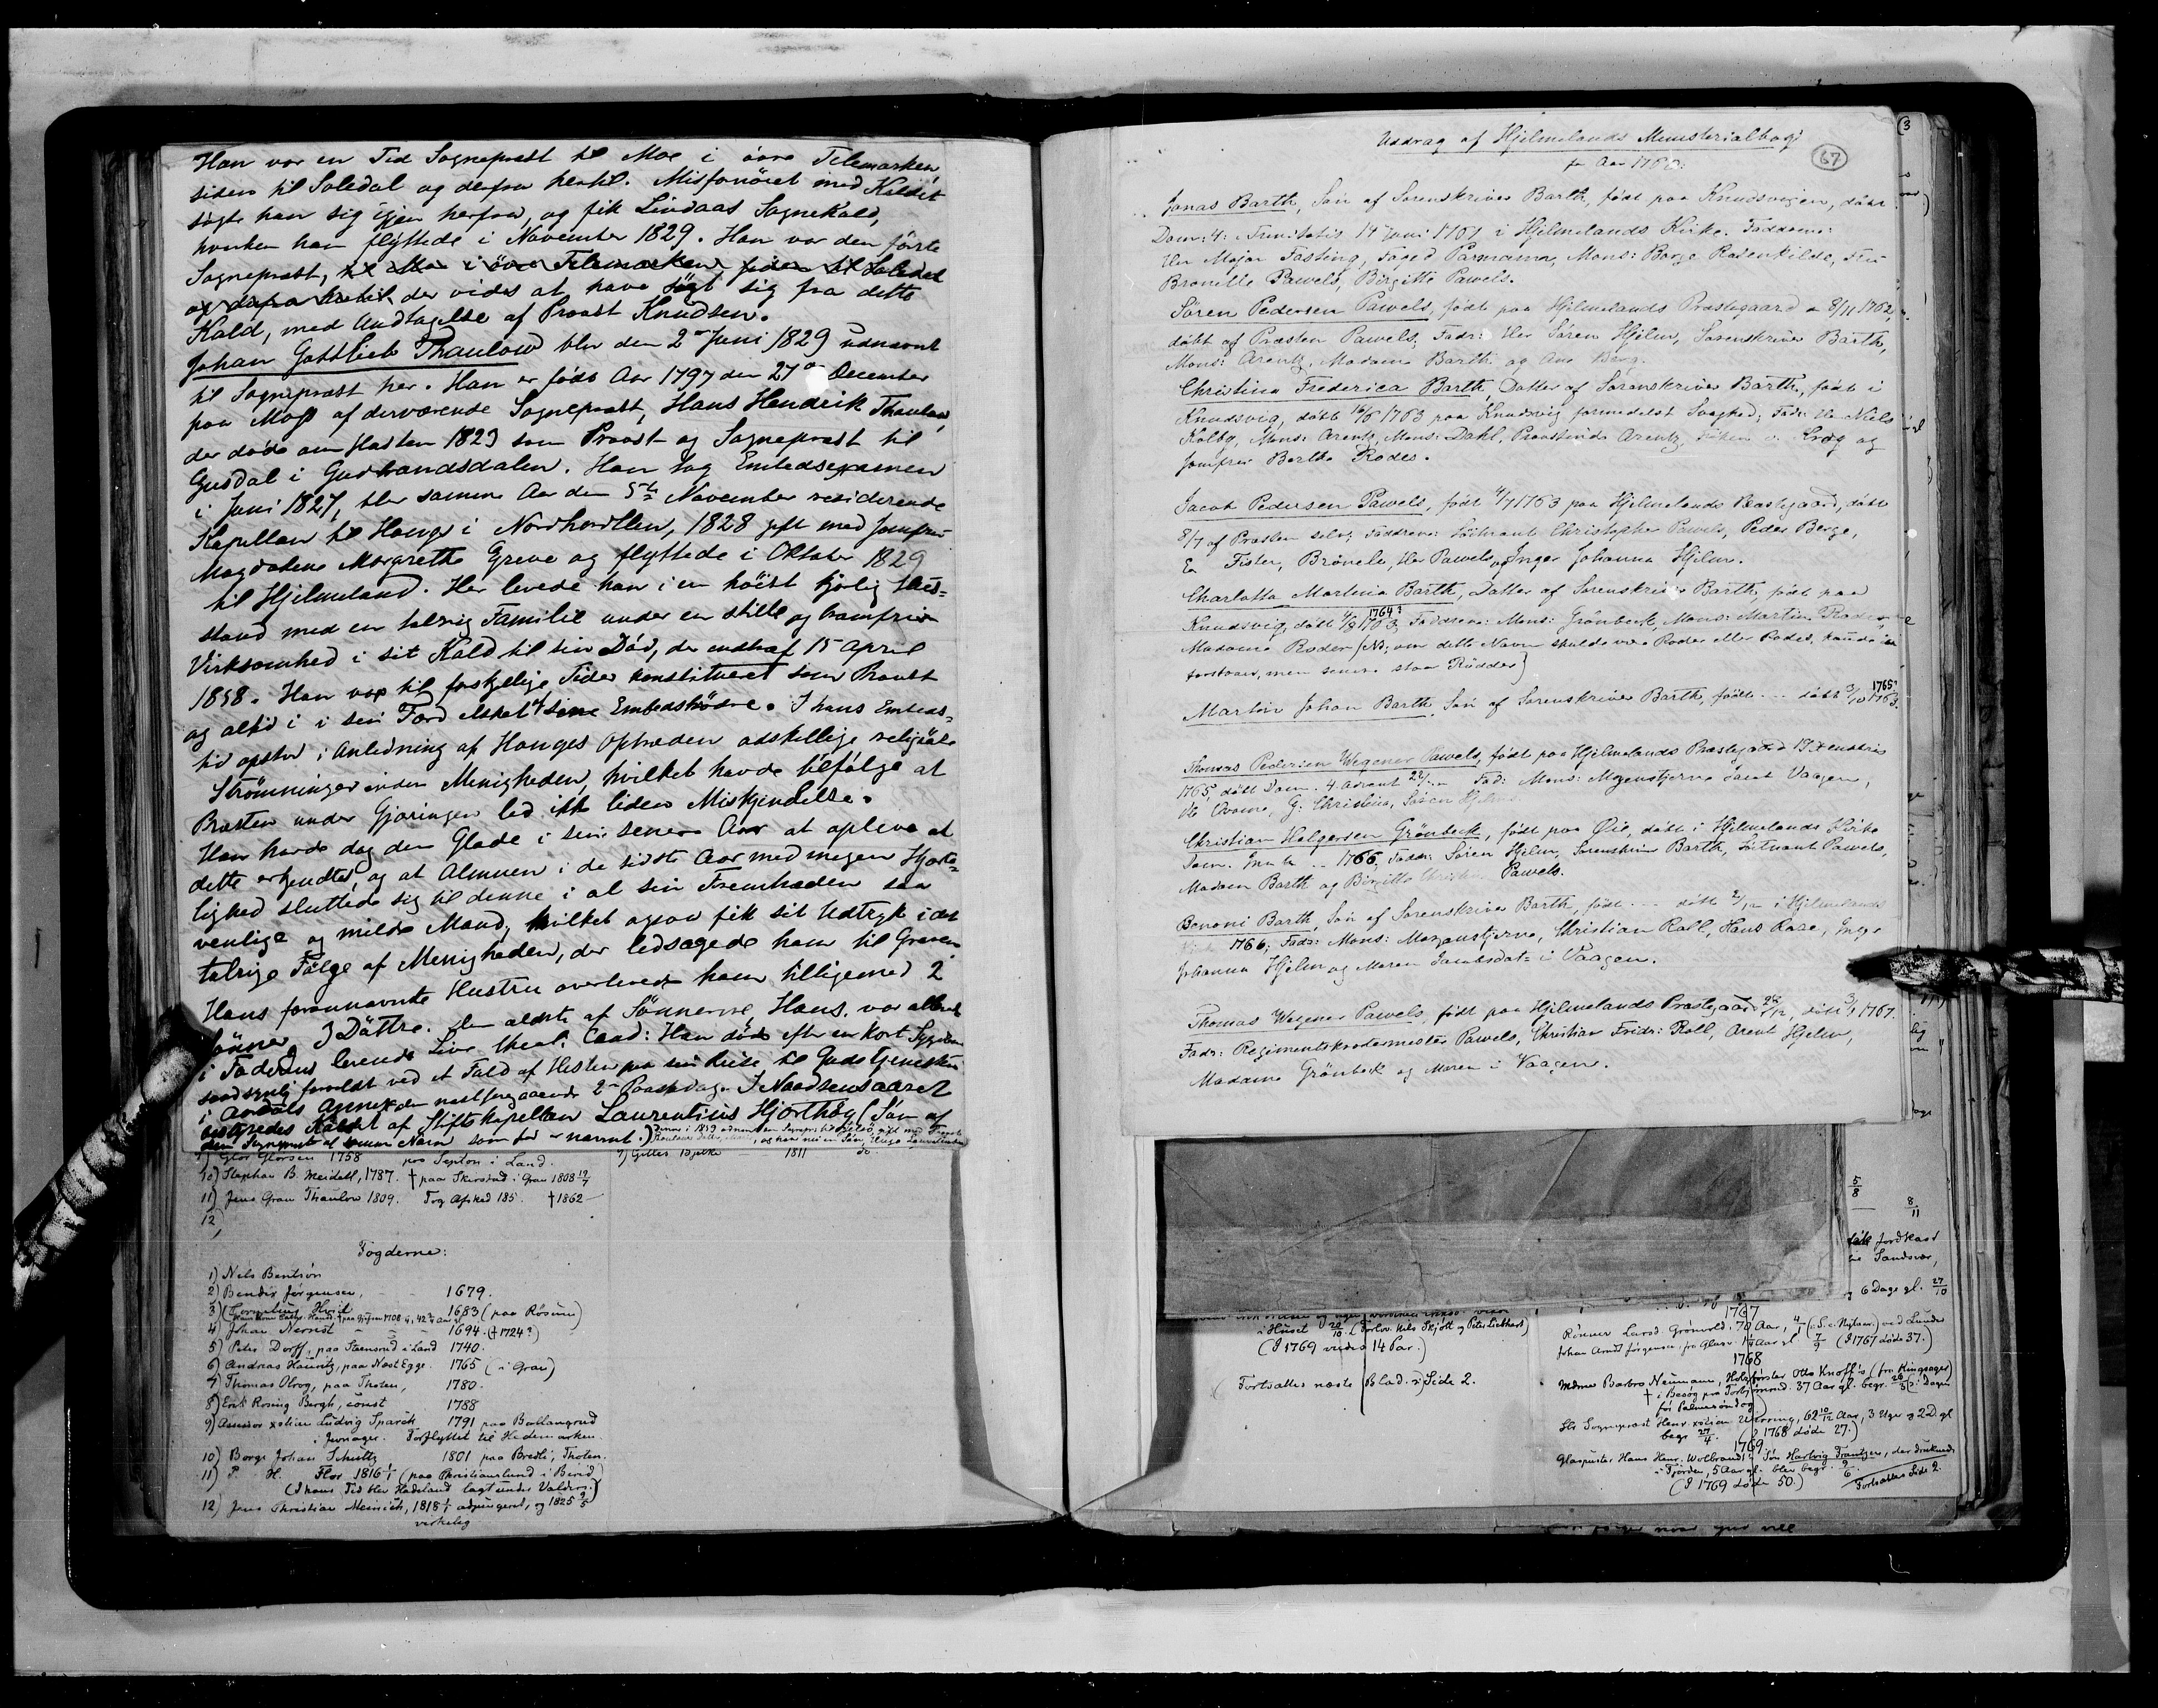 Han var en Tid Sognepræst til Moe i övre Telemarken,
siden til Soledal og derfra hertil. Misfornöiet med Kaldet
søgte han sig igjen herfra, og fik Lindaas Sognekald,
hvorhen han flyttede i November 1829. Han var den förste
Sognepræst, til Moe i övre Telemarken, siden til Soledal
og derfra hertil, der vides at have sögt sig fra dette
Kald, med Undtagelse af Provst Knudsen.
Johan Gottlieb Thaulow blev den 2 Juni 1829 udnævnt
til Sognepræst her. Han er födt Aar 1797 den 27 December
paa Moss af derværende Sognepræst, Hans Hendrik Thaulow,
der döde om Hösten 1823 som Provst og Sognepræst til
Gusdal i Gudbrandsdalen. Han tog Embedsexamen
i Juni 1827, blev samme Aar den 5te November residerende
Kapellan til Hougs i Nordhordlen, 1828 gift med Jomfru
Magdalene Margrethe Greve og flyttede i Oktober 1829
til Hjelmeland. Her levede han i en höist kjærlig Hus=
stand med en talrig Familie under en stille og
Virksomhed i sit Kald til sin Död, der indtraf 15 April
1858. Han var til forskjellige Tider konstitueret som Provst
og altid i i sin Færd elsket af sine Embedsbrödre. I hans Embeds=
tid opstod i Anledning af Hauges Optræden adskillige religiöse
Strömninger inden Menigheden, hvilket havde tilfölge at
Præsten under Gjæringen led ikke liden Miskjendelse.
Han havde dog den Glæde i sine senere Aar at opleve at
dette erkjendtes, og at Almuen i de sidste Aar med megen Hjerte=
lighed sluttede sig til denne i al sin Fremtræden saa
venlige og milde Mand, hvilket ogsaa fik sit Udtryk i det
talrige Fölge af Menigheden, der ledsagede ham til Graven.
Hans forannævnte Hustru overlevede ham tilligemed 2
Sönner og 3 Döttre. Den ældste af Sönnerne, Hans, var allerede
i Faderens levende Live theol. Cand: Han döde efter en kort Sygdom
sandsynlig foraarsaget ved et Fald af Hesten paa sin Reise til Gudstjenesten
i Aardals Annex den næstforegaaende 2den Paaskedag. I Naadsensaaret
bestyredes Kaldet af Stiftskapellan Laurentius Hjorthög (Sön af
den Sognepræst af samme Navn som för er nævnt.)
9) Glor Glorsen 1758 paa Septon i Land.
10) Stephan B. Meidell, 1787. † paa Skiersted i Gran 1808 19/7
11) Jens Gran Thaulow 1809. Tog Afsked 185 . † 1862 —
12)
7) Gilles Bjelke — 1811 do
Fogderne:
1) Nels Bentsön
2) Bendix Jørgensen, - - 1679.
3) Cornelius Hvid 1683 (paa Røsum)
4) Johan Nernst - - - 1694. († 1724?)
5) Peter Dorff, paa Steensrud i Land 1740.
6) Andreas Hauritz, paa Næst Egge. 1765 (i Gran)
7) Thomas Olrog, paa Thoten, 1780.
8) Erik Rosing Bergh, const 1788
9) Assessor xstian Ludvig Sparck 1791 paa Ballangrud
i Jevnager. Forflyttet til Hedemarken.
10) Borge Johan Schultz 1801 paa Bredli, Thoten.
11) P. H. Flor 1816 1/1 (paa Christianslund i Birid)
(I hans Tid blev Hadeland lagt under Valders.)
12) Jens Christian Meinich, 1818 1/1 adjungeret, og 1825 2/5
virkelig
Uddrag af Hjelmelands Ministerialbog
fr Aar 1760.
67
Jonas Barth, Sön af Sorenskriver Barth, födt paa Knudsvigen, döbt
Dom: 4: Trinitatis 14 Juni 1761 i Hjelmelands Kirke. Faddere:
Hr Major Fasting, Foged Parmann, Mons: Borge Rosenkilde, Fru
Bronelle Pawels, Birgitte Pawels.
Sören Pedersen Pawels, födt paa Hjelmelands Præstegaard 8/11 1762,
döbt af Præsten Pawels. Fadr: Her Sören Hjelm, Sorenskriver Barth,
Mons: Arentz, Madame Barth og Ane Berg.
Christina Frederica Barth, Datter af Sorenskriver Barth, födt i
Knudsvig, döbt 16/6 1763 paa Knudsvig formedelst Svaghed; Fad: Hr Niels
Kolbg, Mons: Arentz, Mons: Dahl, Provstinde Arentz, Fröken v. Krog og
Jomfru Berthe Rodes.
Jacob Pedersen Pawels, födt 4/7 1763 paa Hjelmelands Præstegaard, döbt
8/7 af Præsten selv; Faddrene: Löitnant Christopher Pawels, Peder Berge,
Er Fister, Brönele, Her Pawels og Inger Johanna Hjelm.
Charlotta Martina Barth, Datter af Sorenskriver Barth, födt paa
Knudsvig, döbt 4/9 1763, 1764? Faddrene: Mons: Grönbeck, Mons: Martin Rode,
Madame Roder (NB; om dette Navn skulde være Roder eller Rodes, kunde ei
forstaaes, men senere staar Rödder)
Martin Johan Barth, Sön af Sorenskriver Barth, födt ... döbt 3/10 1763. 1765?
Thomas Pedersen Wegener Pawels, födt paa Hjelmelands Præstegaard 19
1765, döbt Dom. 4 Advent 22/12 Fad: Mons: Morgenstjerne Samt Vaagen,
Christian Holgersen Grönbeck, födt paa Öie, döbt i Hjelmelands Kirke
1766; Fadr: Sören Hjelm, Sorenskriver Barth, Löitnant Pawels,
Madam Barth og Birgitte Pawels.
Benoni Barth, Sön af Sorenskriver Barth, födt ... döbt 2/12 i Hjelmelands
1766; Fadr: Mons: Morgenstjerne, Christian Roll, Hans Raae, Inger
Johanna Hjelm og Maren Jacobsdat= i Vaagen.
Thomas Wegener Pawels, födt paa Hjelmelands Præstegaard 28/12, döbt 3/1 1767.
Fadr: Regimentskvartermester Pawels, Christian Fridr: Roll, Arent Hjelm,
Madame Grönbeck og Maren i Vaagen.
5/8
8/11
fik Jordkast
Sandsvær,
6 Dage gl. 27/10
i Huset 20/10. (Forlov. Nils Skjött og Peter Liebhart)
(I 1769 viedes 14 Par.)
(Fortsættes næste Blad. Side 2.
1767
Rönner Larsd. Grönvold. 70 Aar, 4/1 (S. c. Nyhavn) ved Lunder
Johan Arndt Jörgensen, fra Glasv. 1 1/4 Aar gl 7/9 (I 1767 döde 37.)
1768
Mdme Barbro Neumann, Holzförster Otto Knoff's (fra Ringsager)
† i Besøg paa Torbjörnrud. 37 Aar gl. begr. 26/3
för Palmesöndag)
Hr Sognepræst Henr. xstian Wirring, 62 10/12 Aar, 3 Uger og 2 D. gl
begr 27/4. (I 1768 döde 27.)
1769
Glaspuster Hans Henr. Wolbrandt's Sön Hartvig Frantzen, der druknede
i Fjorden, 5 Aar gl. blev begr. 9/6
(I 1769 döde 50.)
Fortsættes Side 2.